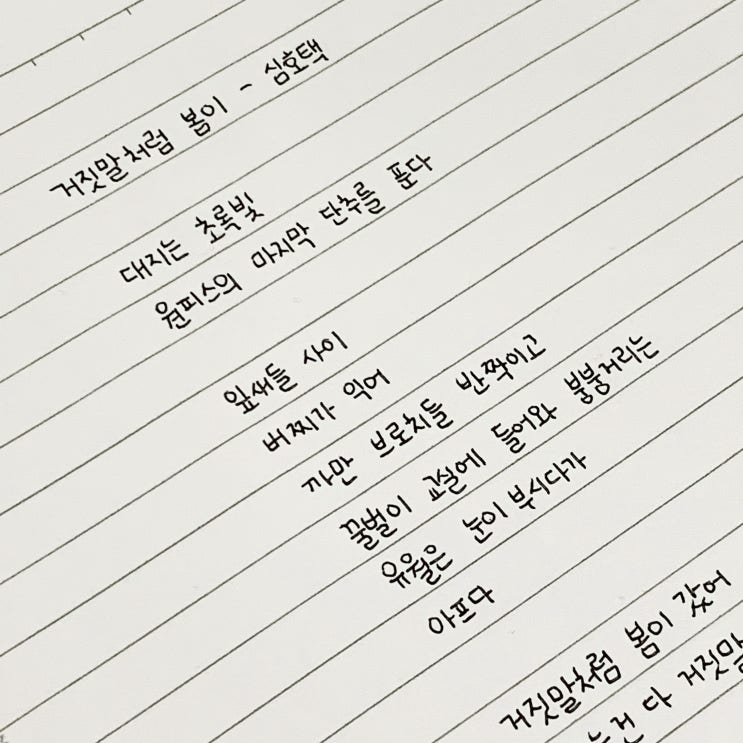 거짓말처럼 봄이 - 심호택
대지는 초록빛
원피스의 마지막 단추를 푼다
잎새들 사이
버찌가 익어
까만 브로치들 반짝이고
꿀벌이 교실에 들어와 붕붕거리는
유월은 눈이 부시다가
아프다
거짓말처럼 봄이 갔어
는건 다 거짓말